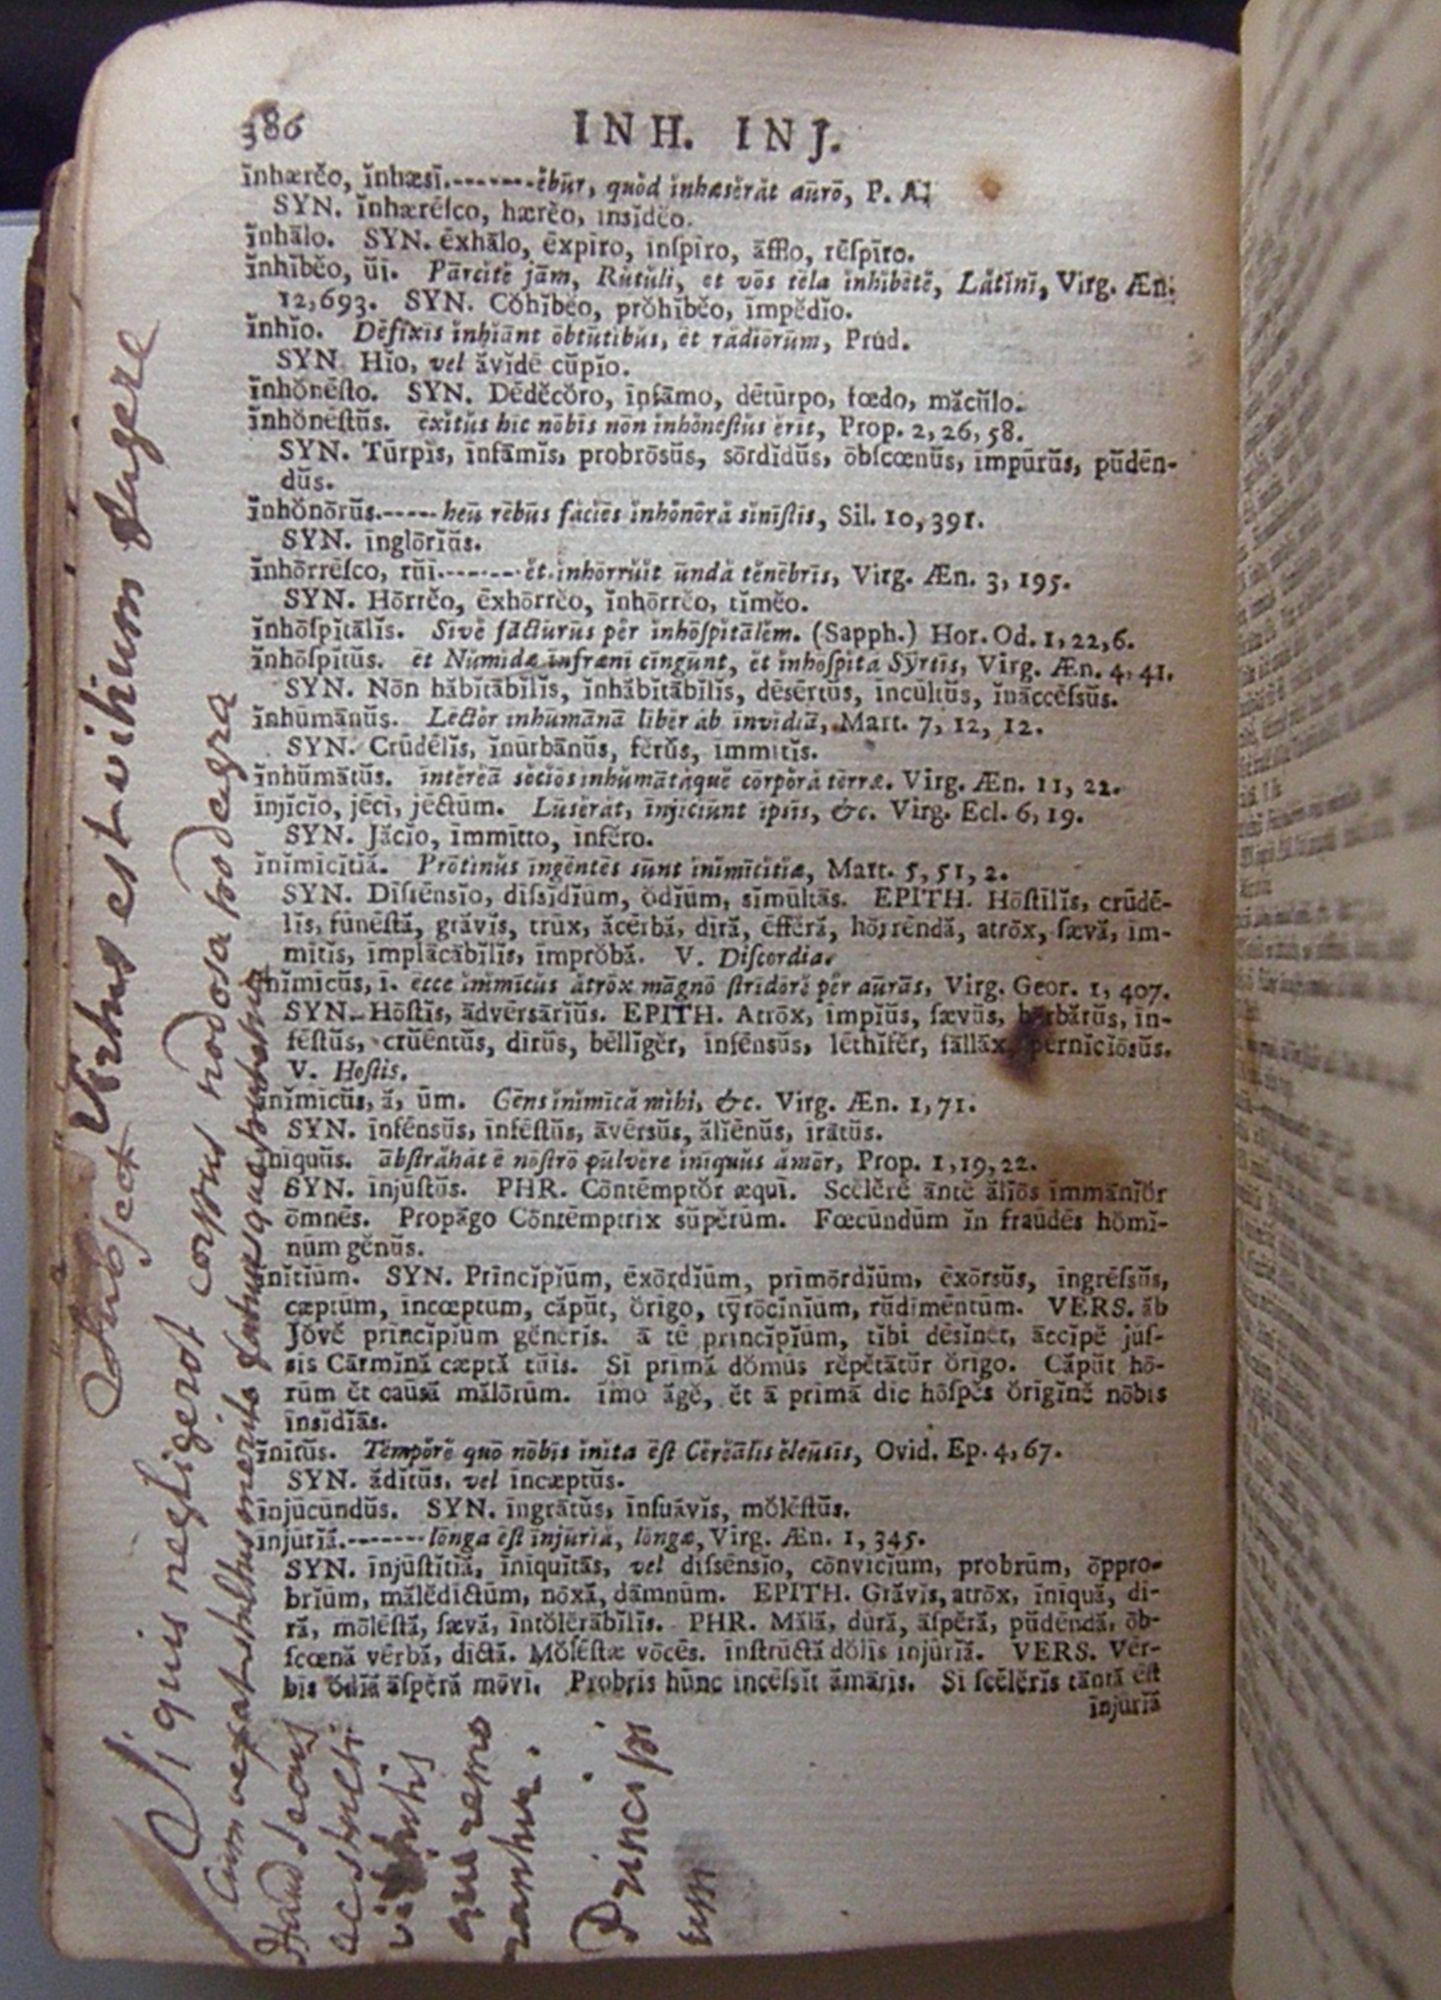 386
INH. INJ.
īnhærĕo, ĭnhæsī.-------ĕbŭr, quŏd ĭnhæsĕrăt aūrō, P. A.
SYN. ĭnhærēſco, hærĕo, ĭnsĭdĕo.
īnhālo. SYN. ēxhālo, ēxpīro, īnſpīro, āfflo, rēſpīro.
īnhĭbĕo, ŭī. Pārcĭtĕ jām, Rŭtŭli, ĕt vōs tēla ĭnhĭbētĕ, Lătīnī, Virg. Æn.
12,693. SYN. Cŏhĭbĕo, prŏhĭbĕo, īmpĕdĭo.
īnhĭo. Dēfīxis ĭnhĭānt ōbtūtĭbŭs, ĕt rădĭōrūm, Prud.
SYN Hĭo, vel ăvĭdē cŭpĭo.
īnhŏnēſto. SYN. Dēdĕcŏro, īnfāmo, dētūrpo, fœdo, măcŭlo.
īnhŏnēſtŭs. ēxĭtŭs hīc nōbīs nōn ĭnhŏnēſtŭs ĕrĭt, Prop. 2, 26, 58.
SYN. Tūrpĭs, īnfāmĭs, probrōsŭs, sōrdĭdŭs, ōbſcœnŭs, īmpūrŭs, pŭdēn-
dŭs.
īnhŏnōrŭs.-----heū rēbŭs făcĭēs ĭnhŏnōră sĭnīſtis, Sil. 10, 391.
SYN. īnglōrĭŭs.
īnhōrrēſco, rŭī.-------ĕt ĭnhōrrŭĭt ūndă tĕnēbrīs, Virg. Æn. 3, 195.
SYN. Hōrrĕo, ēxhōrrĕo, ĭnhōrrĕo, tĭmĕo.
īnhōſpĭtālĭs. Sīvĕ fāctūrŭs pĕr ĭnhōſpĭtālĕm. (Sapph.) Hor. Od. 1, 22, 6.
īnhōſpĭtŭs. ĕt Nŭmĭdæ īnfrænī cīngūnt, ĕt ĭnhōſpĭta Sȳrtĭs, Virg. Æn. 4, 41.
SYN. Nōn hăbĭtābĭlĭs, ĭnhăbĭtābĭlĭs, dēsērtŭs, īncūltŭs, ĭnāccēſsŭs.
īnhūmānŭs. Lēctŏr ĭnhūmānā lībĕr ăb īnvĭdĭā, Mart. 7, 12, 12.
SYN. Crūdēlĭs, ĭnūrbānŭs, fĕrŭs, īmmītĭs.
īnhŭmātŭs. īntĕrĕā sŏcĭōs ĭnhŭmātăquĕ cōrpŏră tērræ. Virg. Æn. 11, 22.
īnjĭcĭo, jēcī, jēctūm. Lūsĕrăt, īnjĭcĭūnt ipsīs, &c. Virg. Ecl. 6, 19.
SYN. Jăcĭo, īmmītto, īnfĕro.
ĭnĭmīcĭtĭă. Prōtĭnŭs īngēntēs sūnt ĭnĭmīcĭtĭæ, Mart. 5, 51, 2.
SYN. Dĭſsēnsĭo, dĭſsĭdĭūm, ŏdĭūm, sĭmūltās. EPITH. Hōſtīlĭs, crūdē-
lĭs, fūnēſtă, grăvĭs, trūx, ăcērbă, dīră, ēffĕră, hōrrēndă, atrōx, ſævă, īm-
mītĭs, īmplācābĭlĭs, īmprŏbă. V. Diſcordia.
ĭnĭmīcŭs, ī. ēcce ĭnĭmīcŭs ătrōx māgnō ſtrīdōrĕ pĕr aūrās, Virg. Geor. 1, 407.
SYN. Hōſtĭs, ādvērsārĭŭs. EPITH. Atrōx, īmpĭŭs, ſævŭs, bārbărŭs, īn-
fēſtŭs, crŭēntŭs, dīrŭs, bēllĭgĕr, īnfēnsŭs, lēthĭfĕr, fāllāx, pērnĭcĭōsŭs.
V. Hoſtis.
ĭnĭmīcŭs, ă, ūm. Gēns ĭnĭmīcă mĭhi, &c. Virg. Æn. 1, 71.
SYN. īnfēnsŭs, īnfēſtŭs, āvērsŭs, ălĭēnŭs, īrātŭs.
ĭnīquŭs. ābſtrăhăt ē nōſtrō pūlvĕre ĭnīquŭs ămŏr, Prop. 1, 19, 22.
SYN. īnjūſtŭs. PHR. Cōntēmptŏr æquī. Scĕlĕrĕ āntĕ ălĭōs īmmānĭŏr
ōmnēs. Propāgo Cōntēmptrīx sŭpĕrūm. Fœcūndūm īn fraūdēs hŏmĭ-
nūm gĕnŭs.
ĭnĭtĭūm. SYN. Prīncĭpĭūm, ēxōrdĭūm, prīmōrdĭūm, ēxōrsŭs, īngrēſsŭs,
cæptūm, īncœptum, căpŭt, ŏrīgo, tȳrōcĭnĭūm, rŭdīmēntūm. VERS. āb
Jŏvĕ prīncĭpĭum gĕnĕrĭs. ā tē prīncĭpĭūm, tĭbi dēsĭnĕt, āccĭpĕ jūſ-
sis Cārmĭnă cæptă tŭīs. Si prīmă dŏmus rĕpĕtātŭr ŏrīgo. Căpŭt hō-
rūm ĕt caūsă mălōrūm. īmo ăgĕ, ĕt ā prīmā dic hōſpĕs ŏrīgĭnĕ nōbis
īnsĭdĭās.
ĭnĭtŭs. Tēmpŏrĕ quō nōbīs ĭnĭta ēſt Cĕrĕālĭs ĕleūsīs, Ovid. Ep. 4, 67.
SYN. ădĭtŭs, vel īncæptŭs.
īnjūcūndŭs. SYN. īngrātŭs, īnſuāvĭs, mŏlēſtŭs.
īnjūrĭă.-------lōnga ēſt īnjūrĭă, lōngæ, Virg. Æn. 1, 345.
SYN. īnjūſtĭtĭă, ĭnīquĭtās, vel dĭſsēnsĭo, cōnvīcĭum, probrūm, ōppro-
brĭūm, mălĕdīctūm, nōxă, dāmnūm. EPITH. Grăvĭs, atrōx, ĭnīquă, dī-
ră, mŏlēſtă, ſævă, īntŏlĕrābĭlĭs. PHR. Mălă, dūră, āſpĕră, pŭdēndă, ōb-
ſcœnă vērbă, dīctă. Mŏlēſtæ vōcēs. īnſtrūctă dŏlīs īnjūrĭă. VERS. Vēr-
bis ŏdĭă āſpĕră mōvi. Probris hūnc incēſsĭt ămāris. Si ſcĕlĕrĭs tāntă ēſt
īnjūrĭă
Virtus est vitium fugere
Si quis negligerot corpus nodosa podagra
Cum vexat stultus merito fatuusque putatur
Haud secus
ac stulti
qui
Principi
um